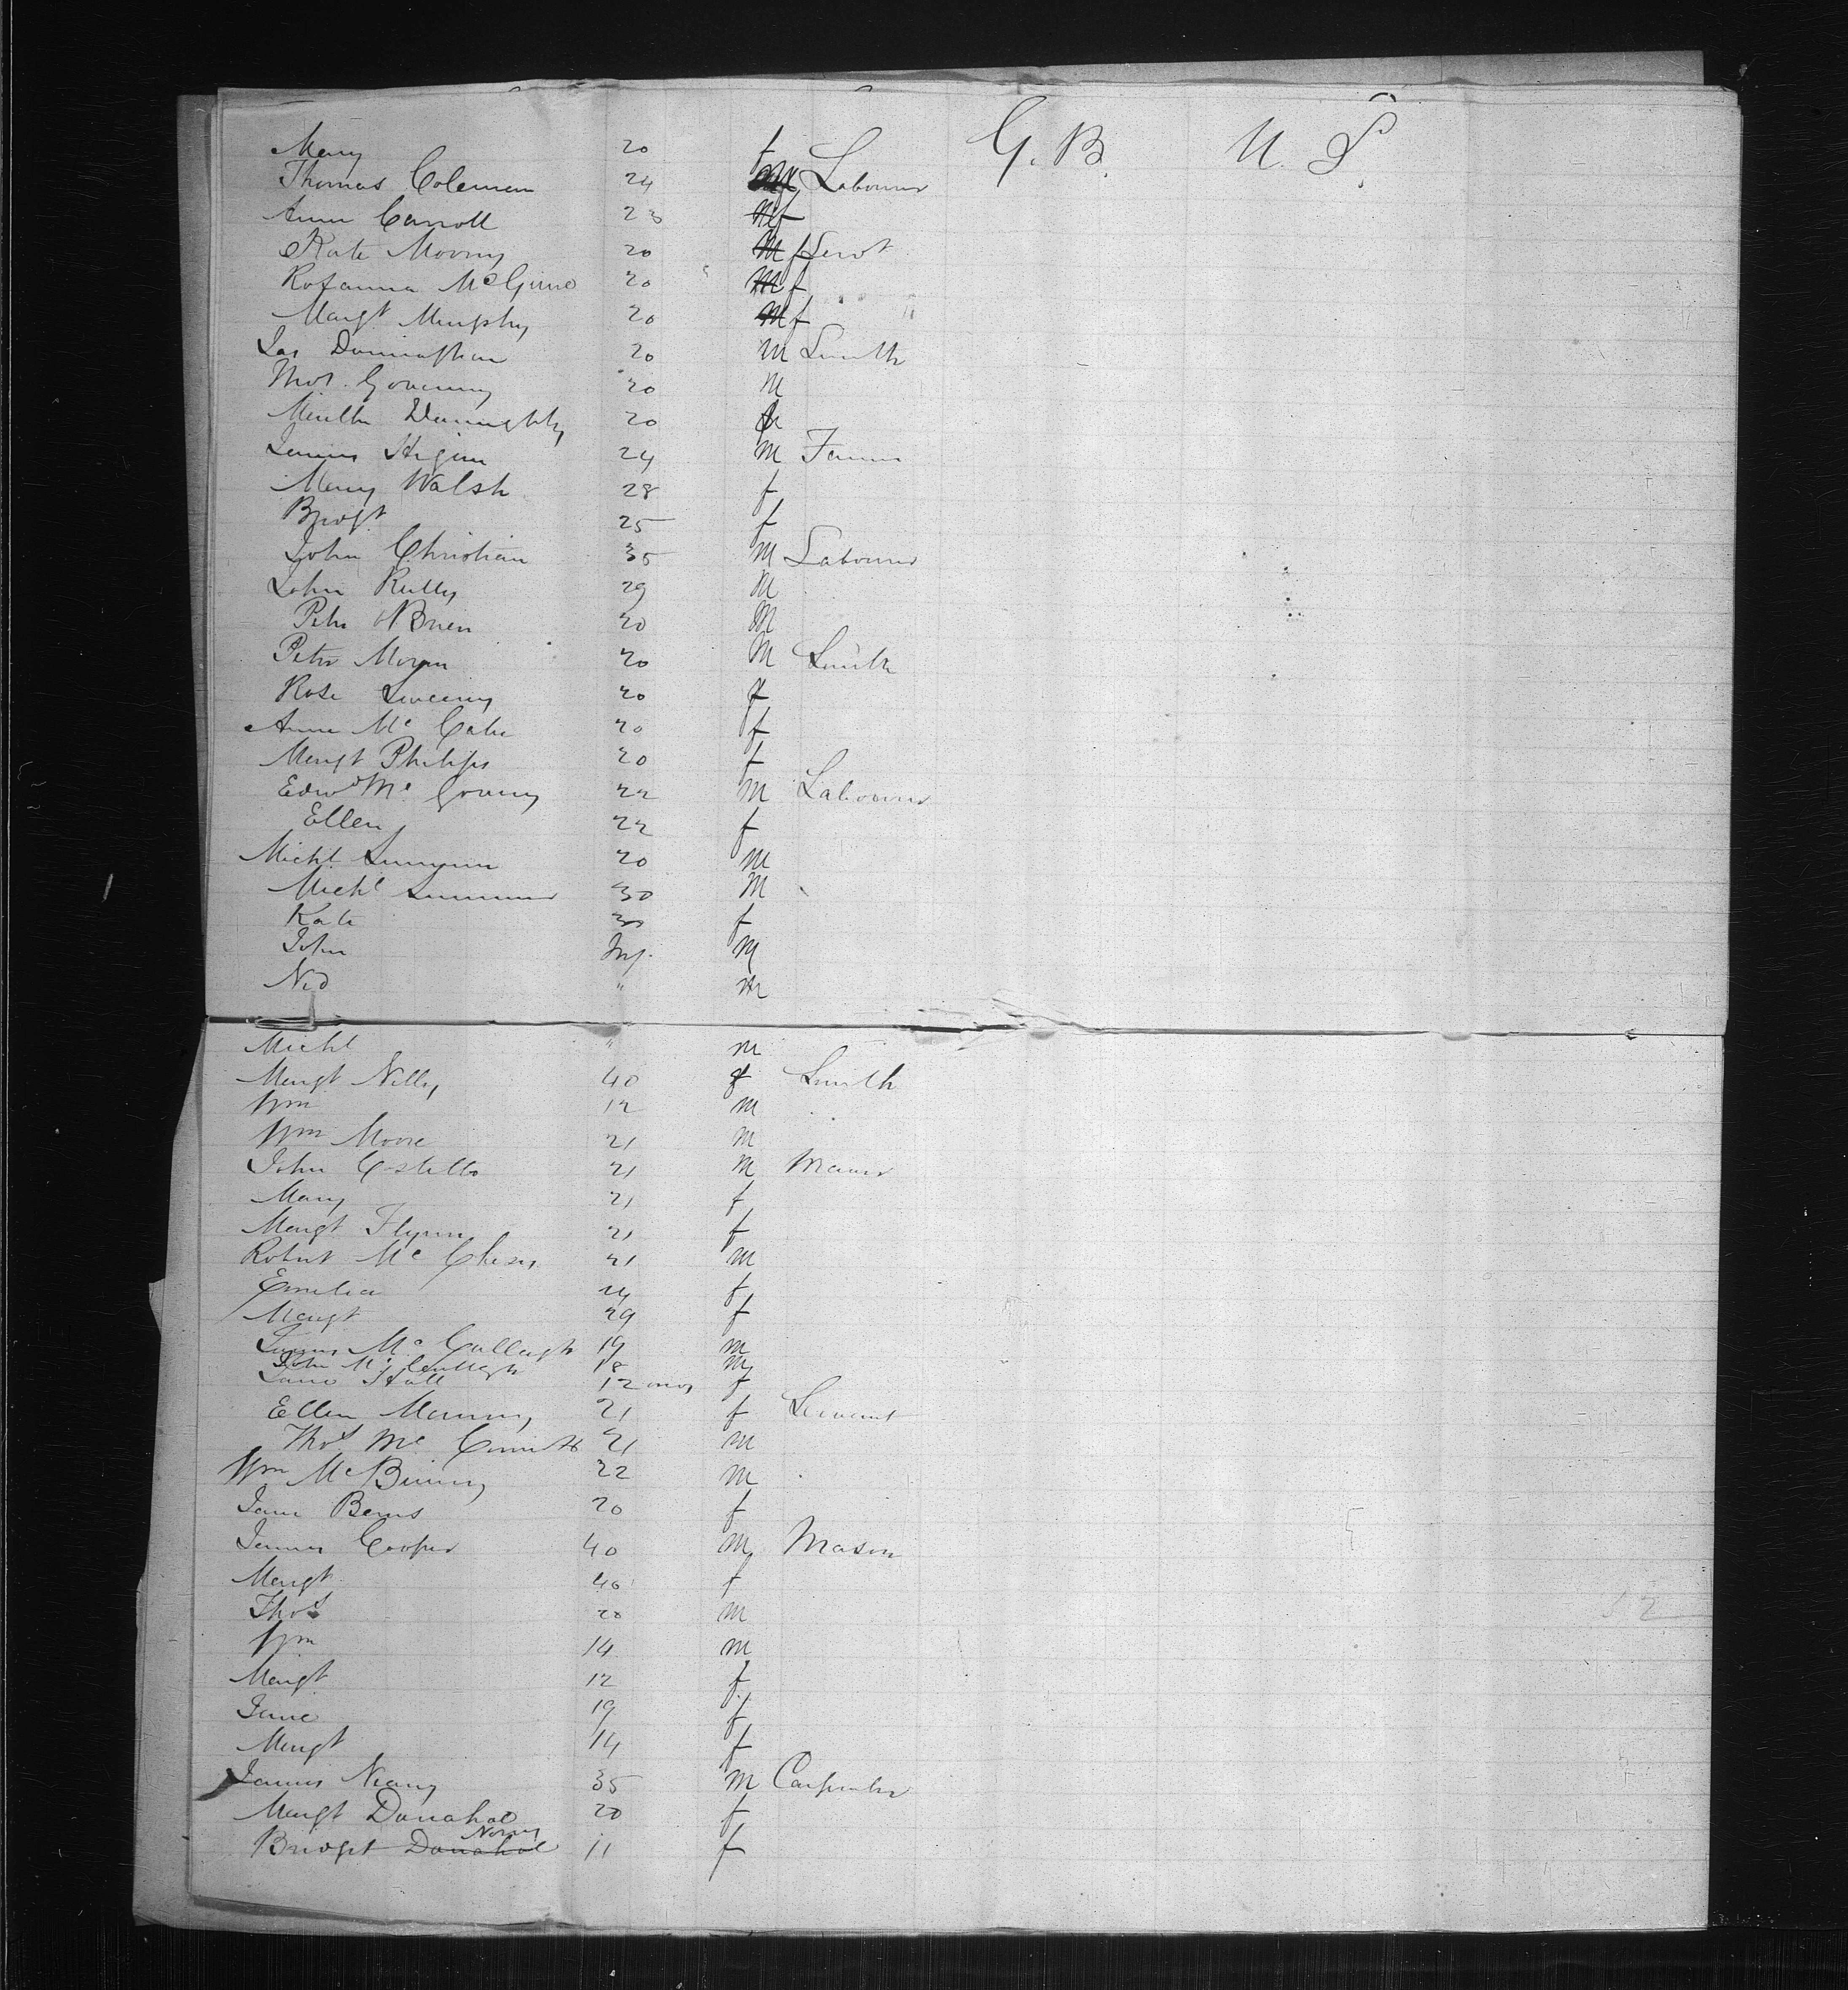 Mary 20 f G. B. U. S.
Thomas Coleman 24 m Labourer
Anne Carroll 23 f
Kate Moony 20 f Servt
Rosanna McGuire 20 f
Margt Murphy 20 f
Jas 20 m Smith
20 m
20
James Higin 24 m Farmer
Mary Walsh 28 f
Bridgt 25 f
John Christian 35 m Labourer
John Reilly 29 m
Peter O'Brien 20 m
Peter Moran 20 m Smith
Rose Sweeny 20 f
Anne Mc Cabe 20 f
Margt Philips 20 f
Edwd Mc 22 m Labourer
Ellen 22 f
Michl 20 m
Michl 30 m
Kate 30 f
John Inf. m
Ned " m
Michl " m
Margt Nelly 40 f Smith
Wm 12 m
Wm Moore 21 m
John Costello 21 m
Mary 21 f
Margt Flynn 21 f
Robert Mc 21 m
Emelia f
Margt 29 f
James Mc Cullagh 19 m
John Mc Cullagh 18 m
Jane Hall 12 mos f
Ellen Manning 21 f Servant
Thos Mc 21 m
Wm Mc 22 m
Jane 20 f
James Cooper 40 m Mason
Margt 40 f
Thos 20 m
Wm 14 m
Margt 12 f
Jane 19 f
Margt 14 f
James 35 m Carpenter
Margt Donahoe 20 f
Bridget Donahoe 11 f